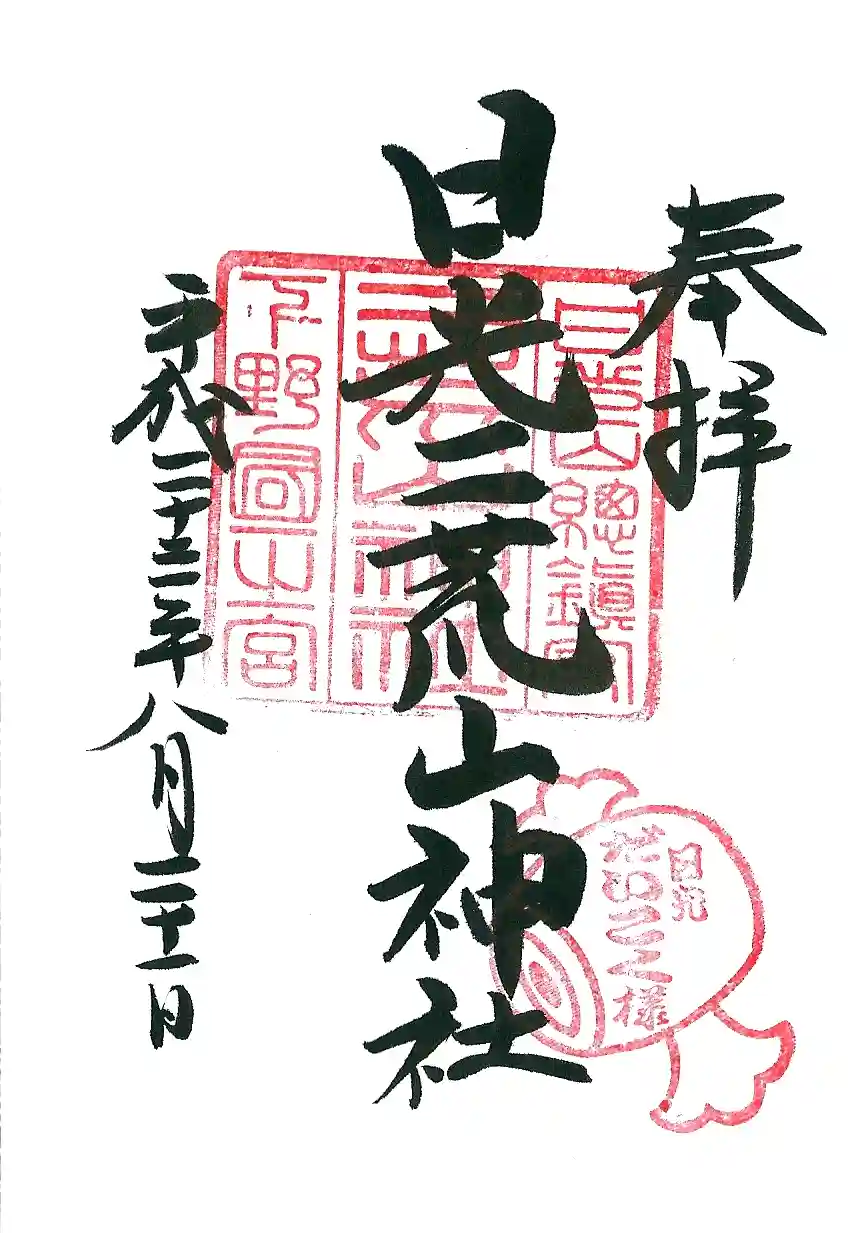 奉拝
日光山總鎮守
日光二荒山神社
二荒山神社
下野國一之宮
平成二十三年八月二十一日
日光